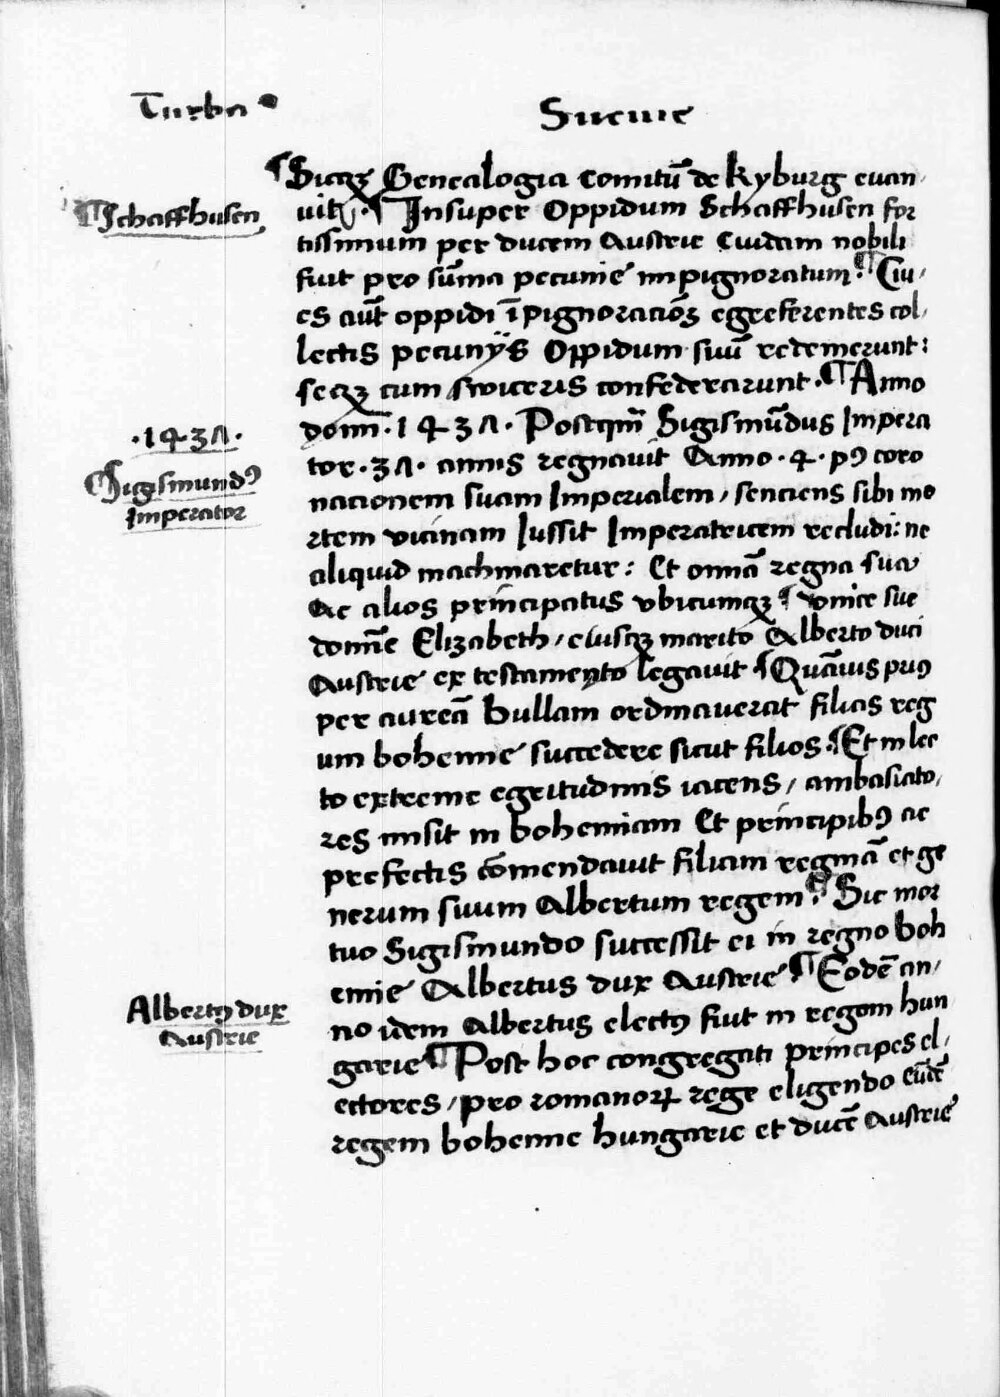 Turba Sueuie
¶Sicqꝫ Genealogia comitū de Kyburg euan-
¶Schaffhusen
uit. ¶Insuper Oppidum Schaffhusen for
tissimum per ducem Austrie Cuidam nobili
fuit pro sūma pecunie impignoratum. ¶Ciu-
es aūt oppidi īpignoracioꝫ egreferentes col-
lectis pecunÿs Oppidum suū redemerunt:
seqꝫ cum swiceris confederarunt. ¶Anno
·1437·
domi ·1437· Postqm̄ Sigismūdus Impera
¶Sigismundꝰ
tor ·37· annis regnauit Anno ·4· pꝰ coro
Imperator
nacionem suam Imperialem / senciens sibi mo
rtem vicinam Iussit Imperatricem recludi: ne
aliquid machinaretur: Et omnā regna sua
Ac alios principatus vbicumqꝫ ¶vnice sue
domīe Elizabeth / eiusqꝫ marito Alberto duci
Austrie ex testamento legauit ¶Quāuis priꝰ
per aureā bullam ordinauerat filias reg
um bohemie succedere sicut filios. ¶Et in lec
to extreme egritudinis iacens / ambasiato-
res misit in bohemiam Et principibꝰ ac
prefectis cōmendauit filiam reginā et ge
nerum suum Albertum regem. ¶Sic mor
tuo Sigismundo successit ei in regno boh
emie Albertus dux Austrie ¶Eodē an-
Albertꝰ dux
no idem Albertus electꝰ fuit in regem hun
Austrie
garie ¶Post hoc congregati principes el-
ectores / pro romanoꝝ rege eligendo eūdē
regem bohemie hungarie et ducē Austrie